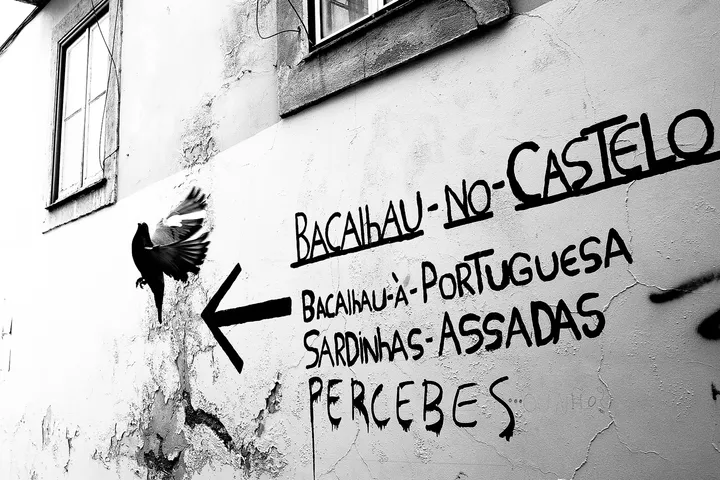 BACAlhAU-NO-CASTELO
BACAlhAU-À-PORTUGUESA
SARDiNhAS-ASSADAS
PERCEBES...